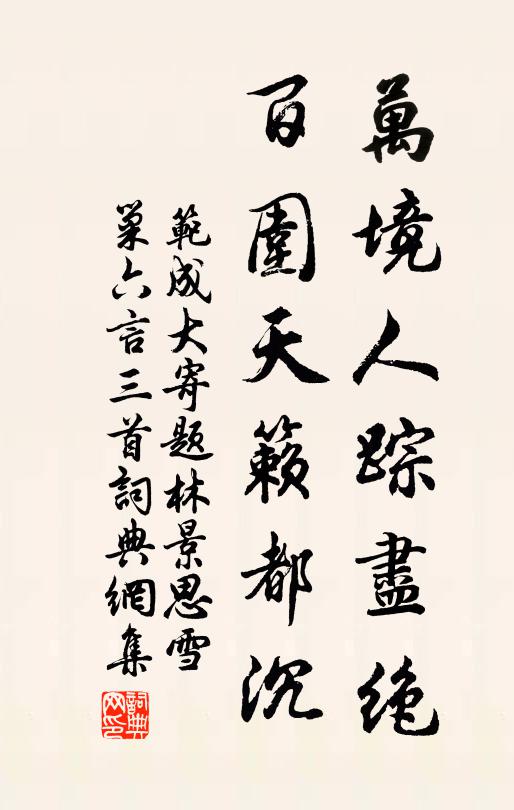 萬境人踪盡絶
百圍天籟都沉
範成大寄題林景思雪
巢六言三首詞典網集
詞典網印